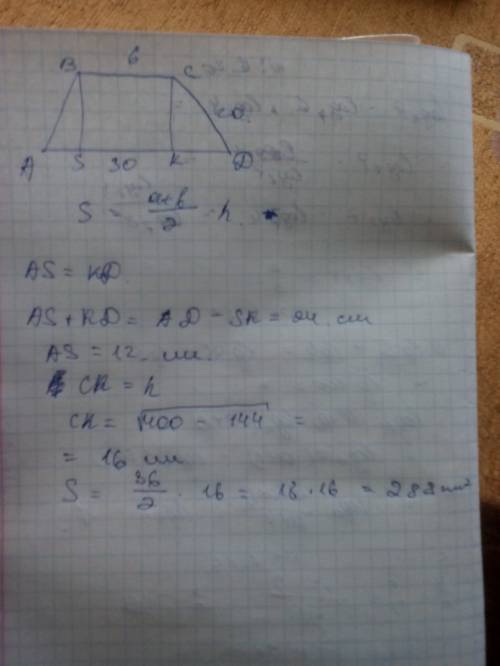 6
B C
20.
A S 30 K D
S = a+b/2 · h.
AS = KD.
AS + KD = AD - SK = 24. см
AS = 12. см.
CK = h
CK = √400 - 144 =
= 16 см
S = 36/2 · 16 = 18 · 16 = 288 см²